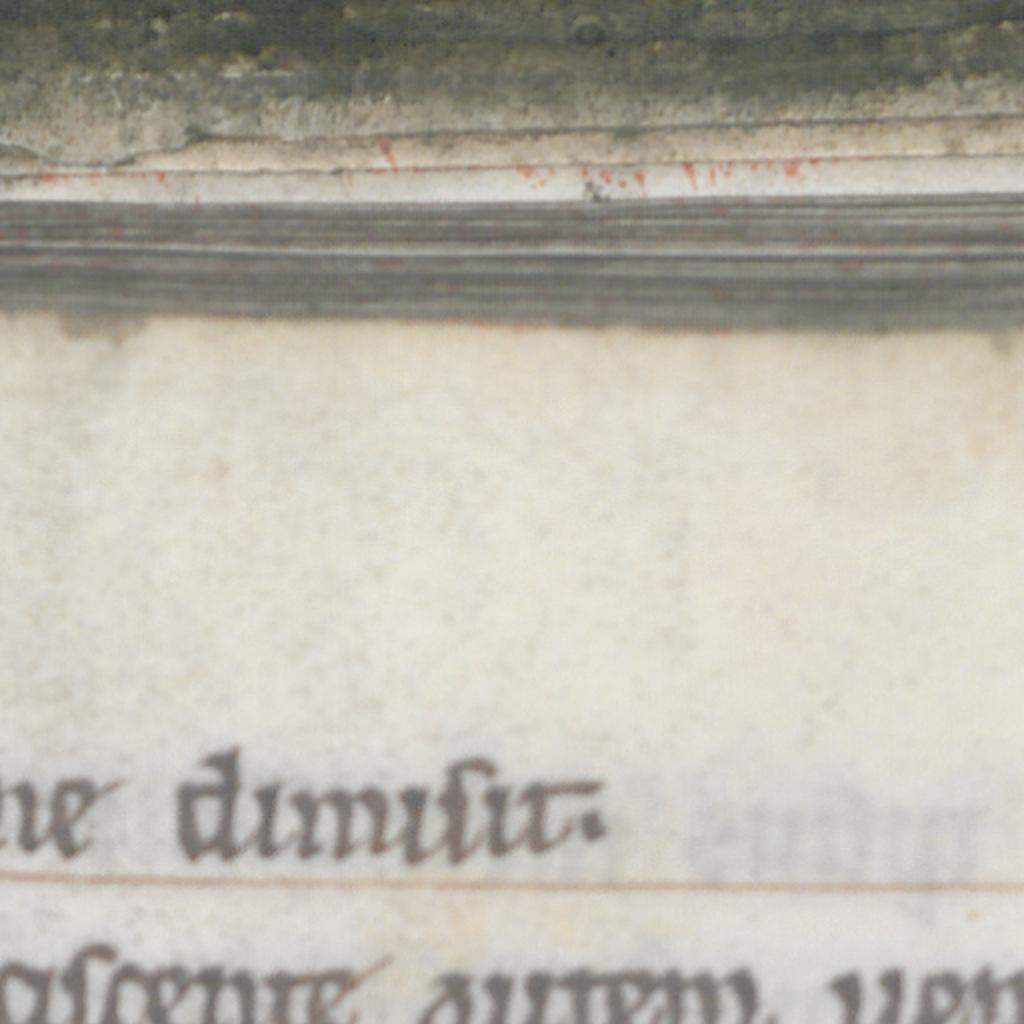 ne dimisit.
ascente autem uen